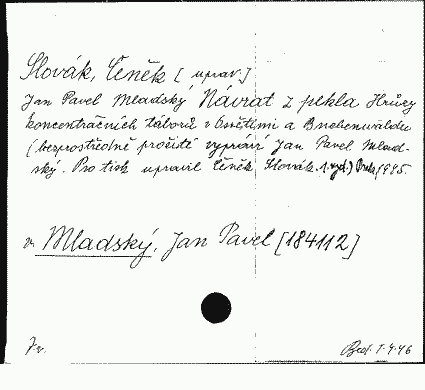 Slovák, Čeněk [uprav.]
Jan Pavel Mladský Návrat z pekla Hrůzy
koncentračních táborů v Osvětimi a Buchenwaldu
(bezprostředně prožité vypráví Jan Pavel Mlad-
ský. Pro tisk upravil Čeněk Slovák. 1. vyd.) 1945
v. Mladský, Jan Pavel [184112]
Jv.